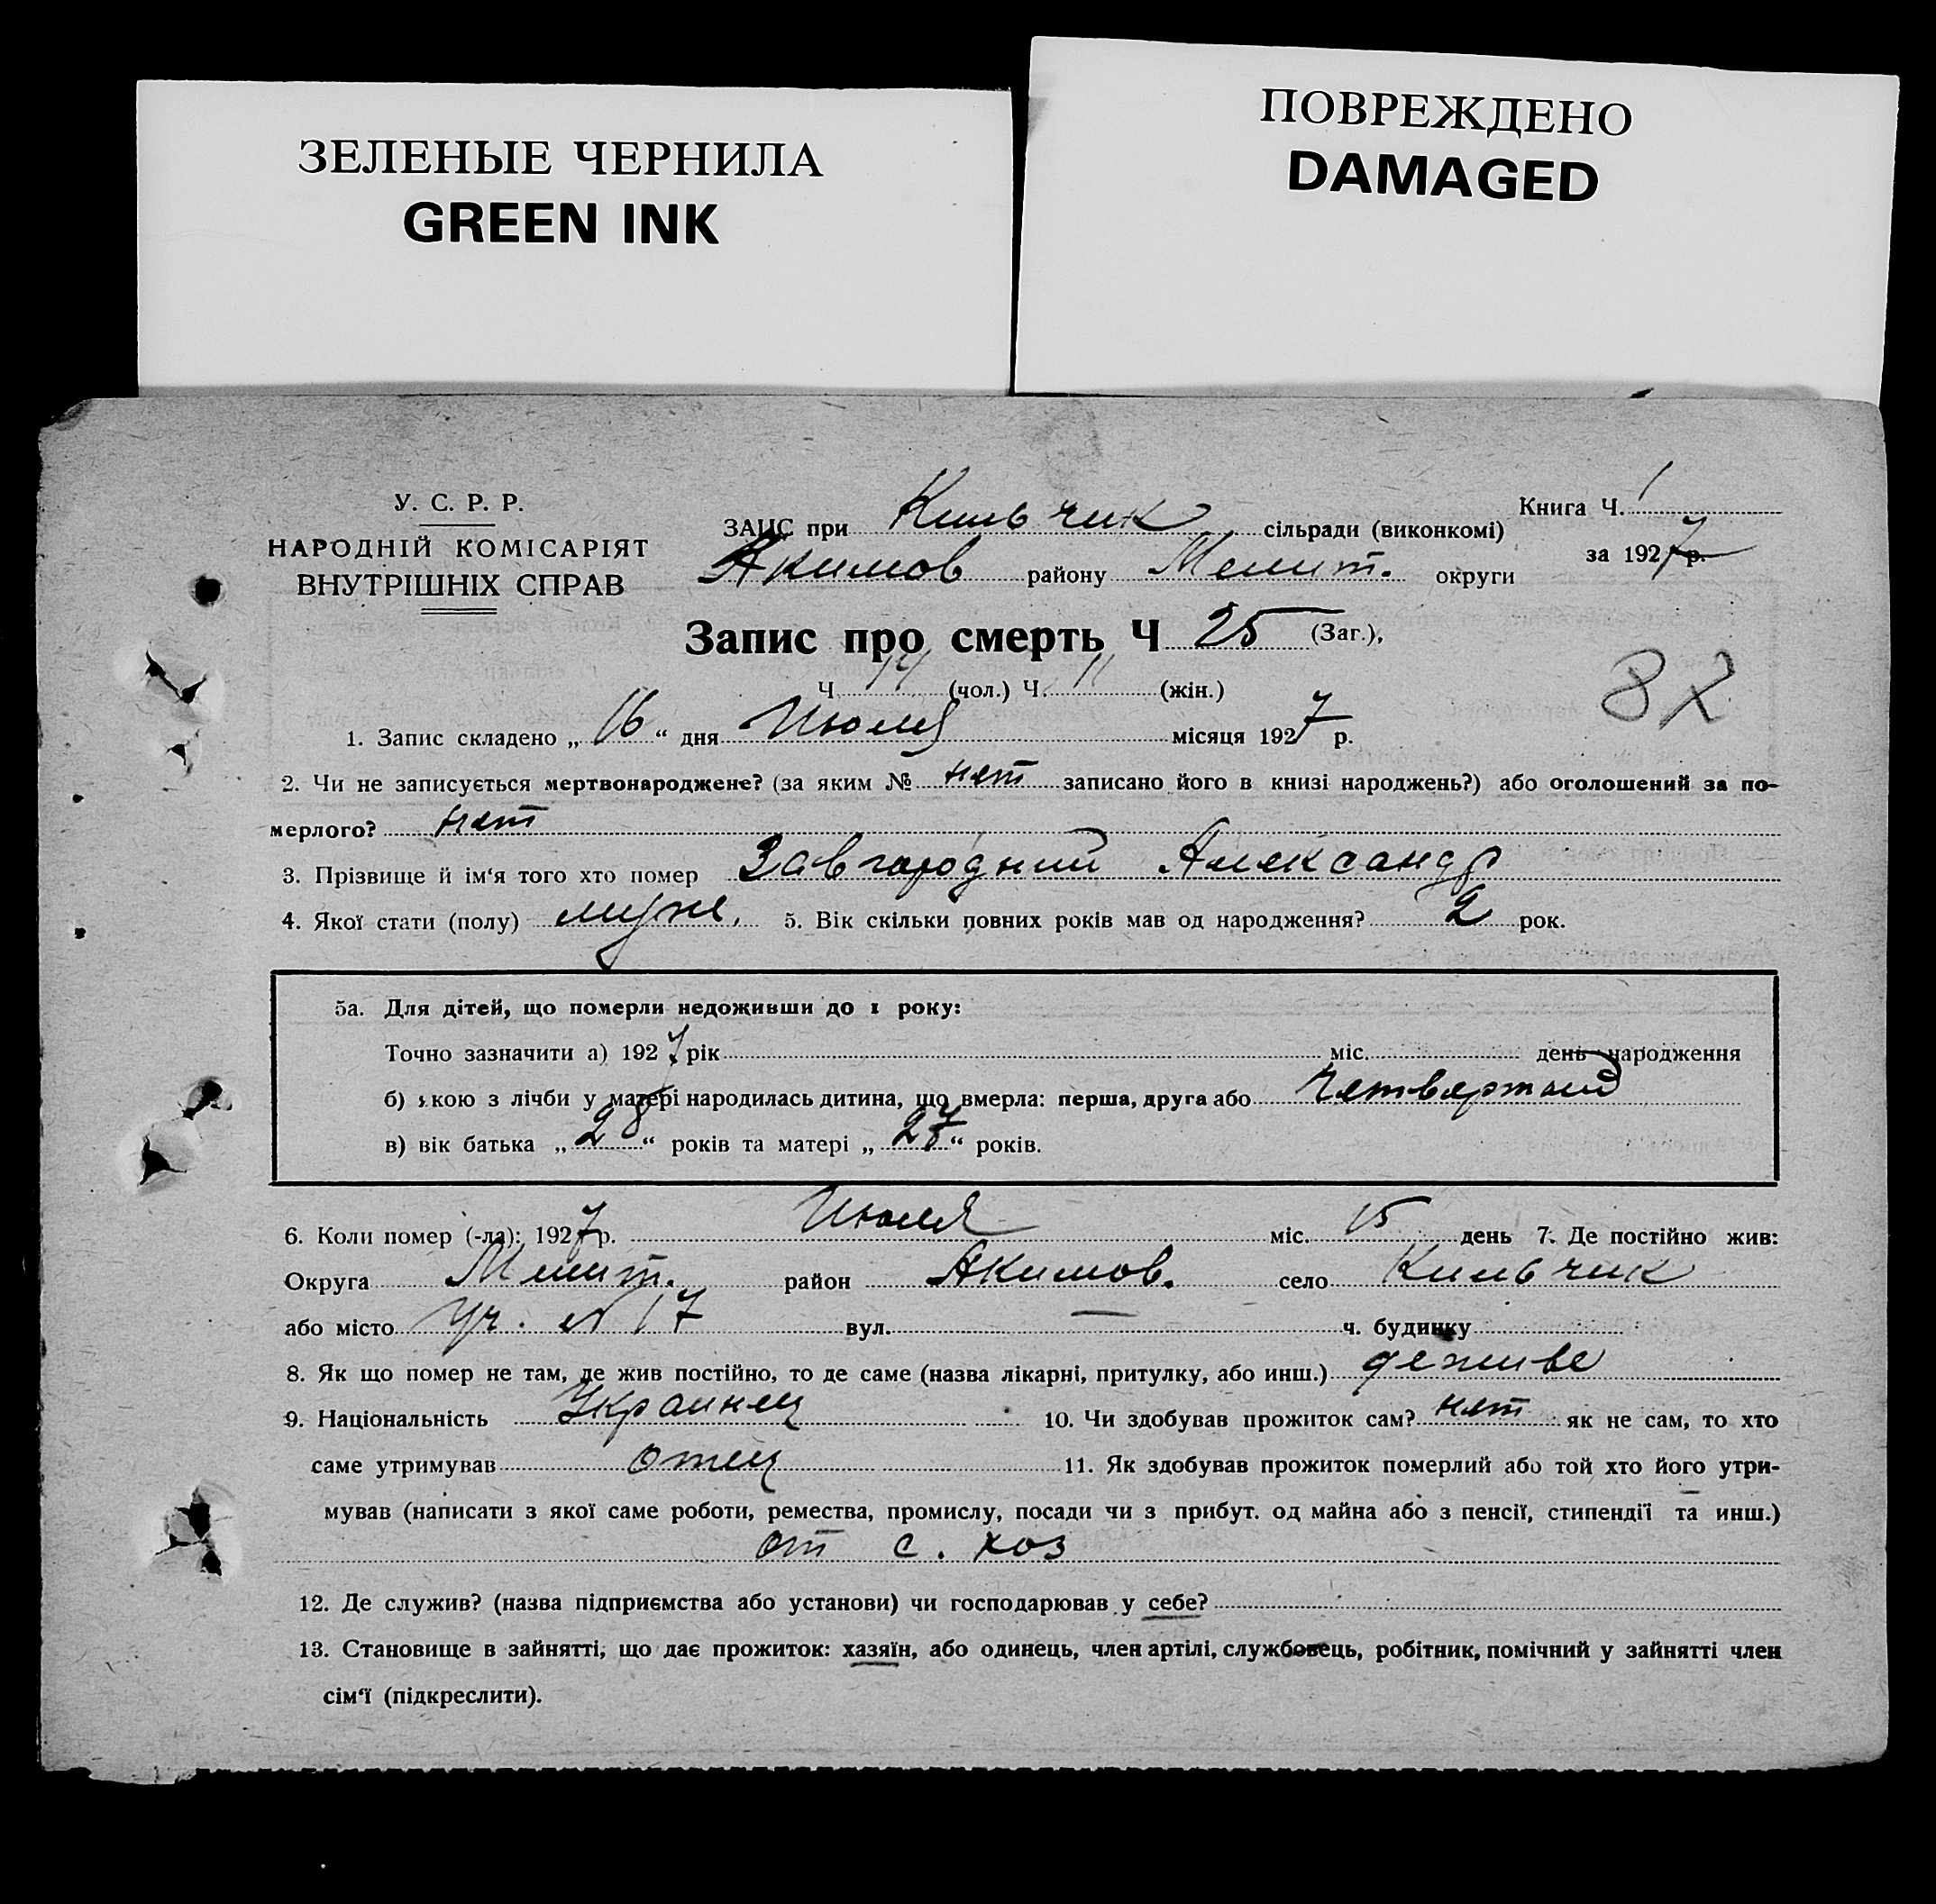 ЗЕЛЕНЫЕ ЧЕРНИЛА
GREEN INK
ПОВРЕЖДЕНО
DAMAGED
У. С. Р. Р.
НАРОДНІЙ КОМІСАРІЯТ
ВНУТРІШНІХ СПРАВ
Книга Ч. 1
за 1927 р.
ЗАЦС при Кильчик сільради (виконкомі)
Акимов району Мелит. округи
Запис про смерть Ч 25 (Заг.),
Ч 14 (чол.) Ч 11 (жін.)
82
1. Запис складено „ 16 “ дня Июля місяця 1927 р.
2. Чи не записується мертвонароджене? (за яким № нет записано його в книзі народжень?) або оголошений за по-
мерлого? нет
3. Прізвище й ім'я того хто помер Завгородний Александр
4. Якої стати (полу) муж. 5. Вік скільки повних років мав од народження? 2 рок.
5а. Для дітей, що померли недоживши до 1 року:
Точно зазначити а) 1927 рік міс. день народження
б) якою з лічби у матері народилась дитина, що вмерла: перша, друга або четвертой
в) вік батька „ 28 “ років та матері „ 27 “ років.
6. Коли помер (-ла): 1927 р. Июля міс. 15 день 7. Де постійно жив:
Округа Мелит. район Акимов. село Кильчик
або місто уч. № 17 вул. — ч. будинку
8. Як що помер не там, де жив постійно, то де саме (назва лікарні, притулку, або инш.) де живе
9. Національність Украинец 10. Чи здобував прожиток сам? нет як не сам, то хто
саме утримував отец 11. Як здобував прожиток померлий або той хто його утри-
мував (написати з якої саме роботи, ремества, промислу, посади чи з прибут. од майна або з пенсії, стипендії та инш.)
от с. хоз
12. Де служив? (назва підприємства або установи) чи господарював у себе?
13. Становище в зайнятті, що дає прожиток: хазяїн, або одинець, член артілі, службовець, робітник, помічний у зайнятті член
сім'ї (підкреслити).